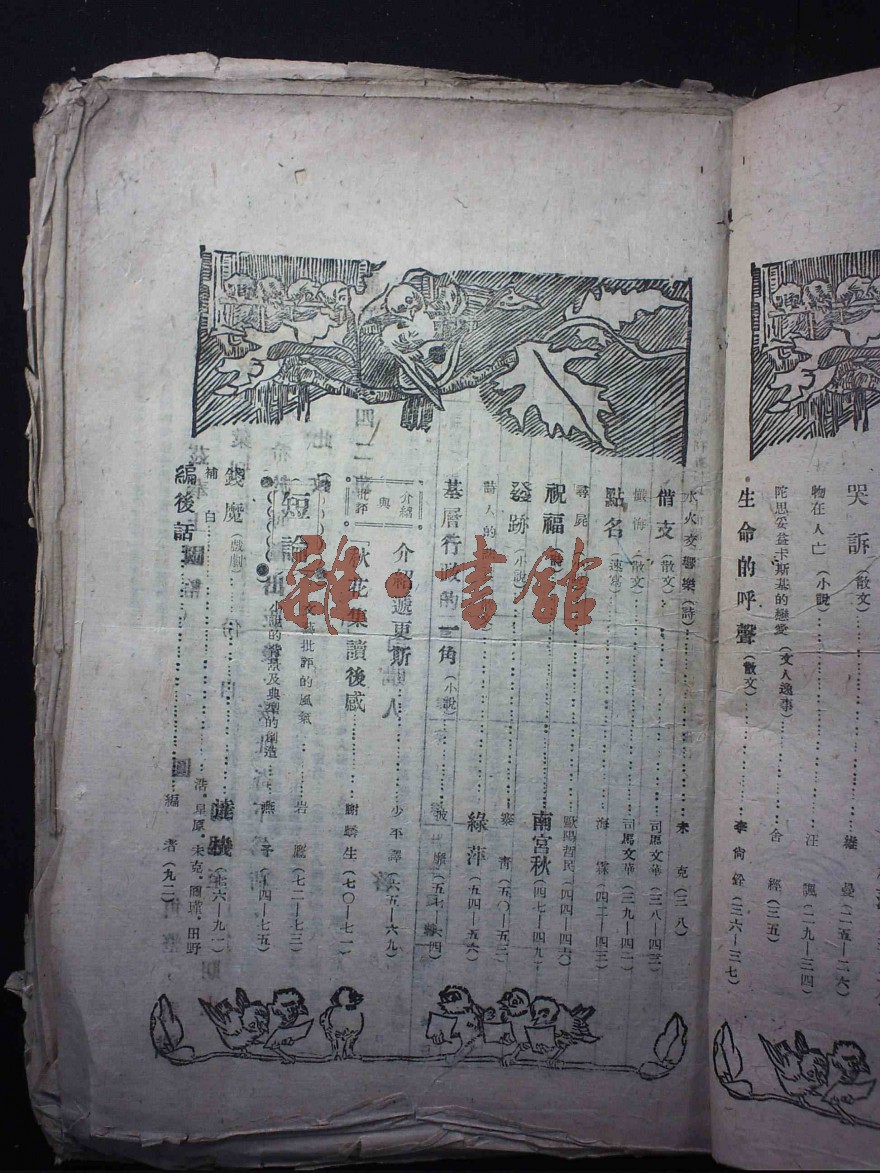 哭訴（散文）……維曼（二五—二六）
物在人亡（小說）……汪（二九—三四）
陀思妥益卡斯基的戀愛（文人逸事）……舍經（三五）
生命的呼聲（散文）……李尙鋒（三六—三七）
水火交響樂（詩）……未克（三八）
借支（散文）……司馬文華（三八—四三）
懺悔（散文）……司馬文華（三九—四一）
點名（速寫）……海霖（四二—四三）
尋屍……歐陽哲民（四四—四六）
祝福……南宮秋（四七—四九）
發跡（小說）……寒靑（五〇—五三）
詩人的……綠萍（五四—五六）
基層行政的一角（小說）……（五七—六四）
介紹與批評
介紹遞更斯……少平譯（六五—六九）
「秋花集讀後感……謝嬌生（七〇—七一）
短論
文藝批評的風氣……岩鷹（七二—七三）
小說的背景及典型的創造……燕予（七四—七五）
錢魔（戲劇）……（七六—九一）
補白……浩．星原．未克．周瑾．田野
編後話……編者（九二）
雜·書館